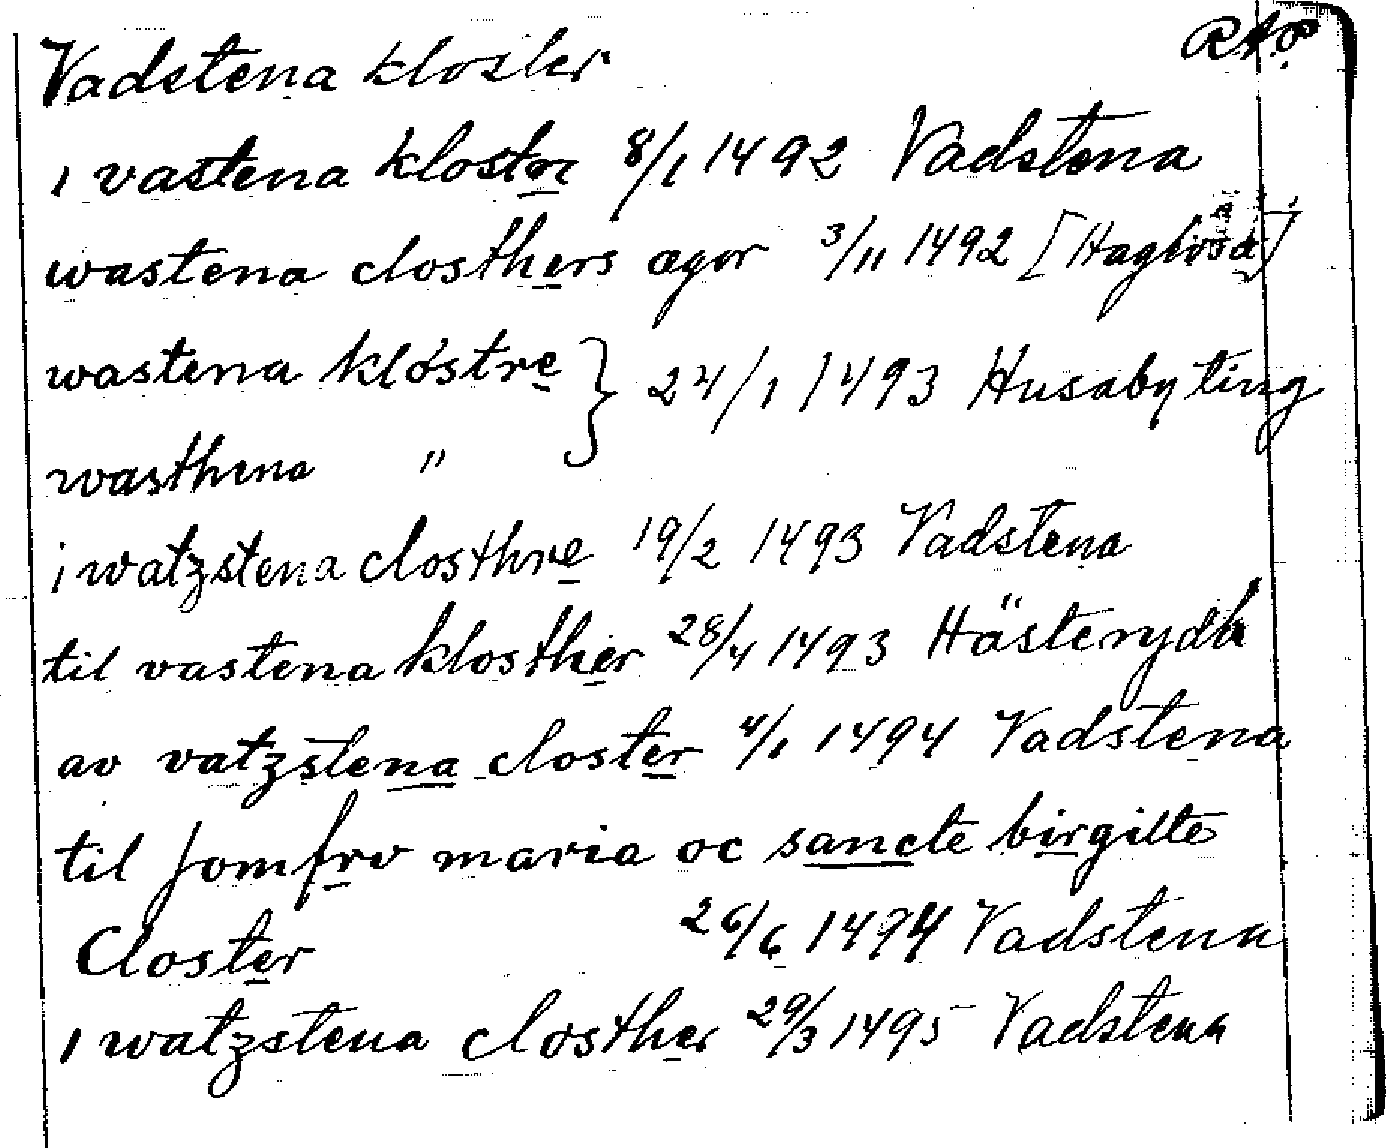 Vadstena kloster RAp
i vastena kloster 8/1 1492 Vadstena
wastena closthers ägor 3/11 1492 [Haglösa]
wastena klostre } 24/1 1493 Husabyting
wasthena "
i watzstena closthre 19/2 1493 Vadstena
til vastena klosther 28/4 1493 Hästerydh
av vatzstena closter 4/1 1494 Vadstena
til Jomfrv maria oc sancte birgitte
Closter 26/6 1494 Vadstena
i watzstena closther 29/3 1495 Vadstena